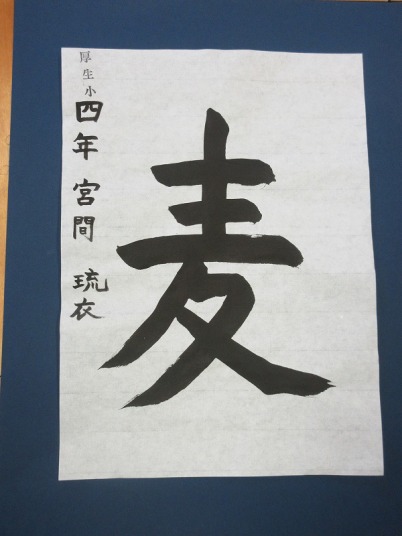 麦
厚生小
四年 宮間 琉衣